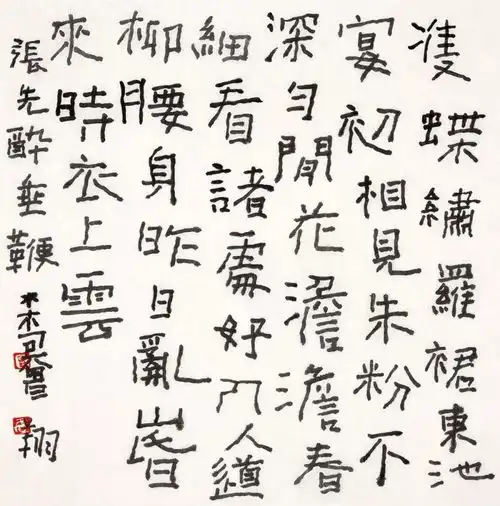 雙蝶繡羅裙東池
宴初相見朱粉不
深勻閑花澹澹春
細看諸處好人人道
柳腰身昨日亂山昏
來時衣上雲
張先醉垂鞭